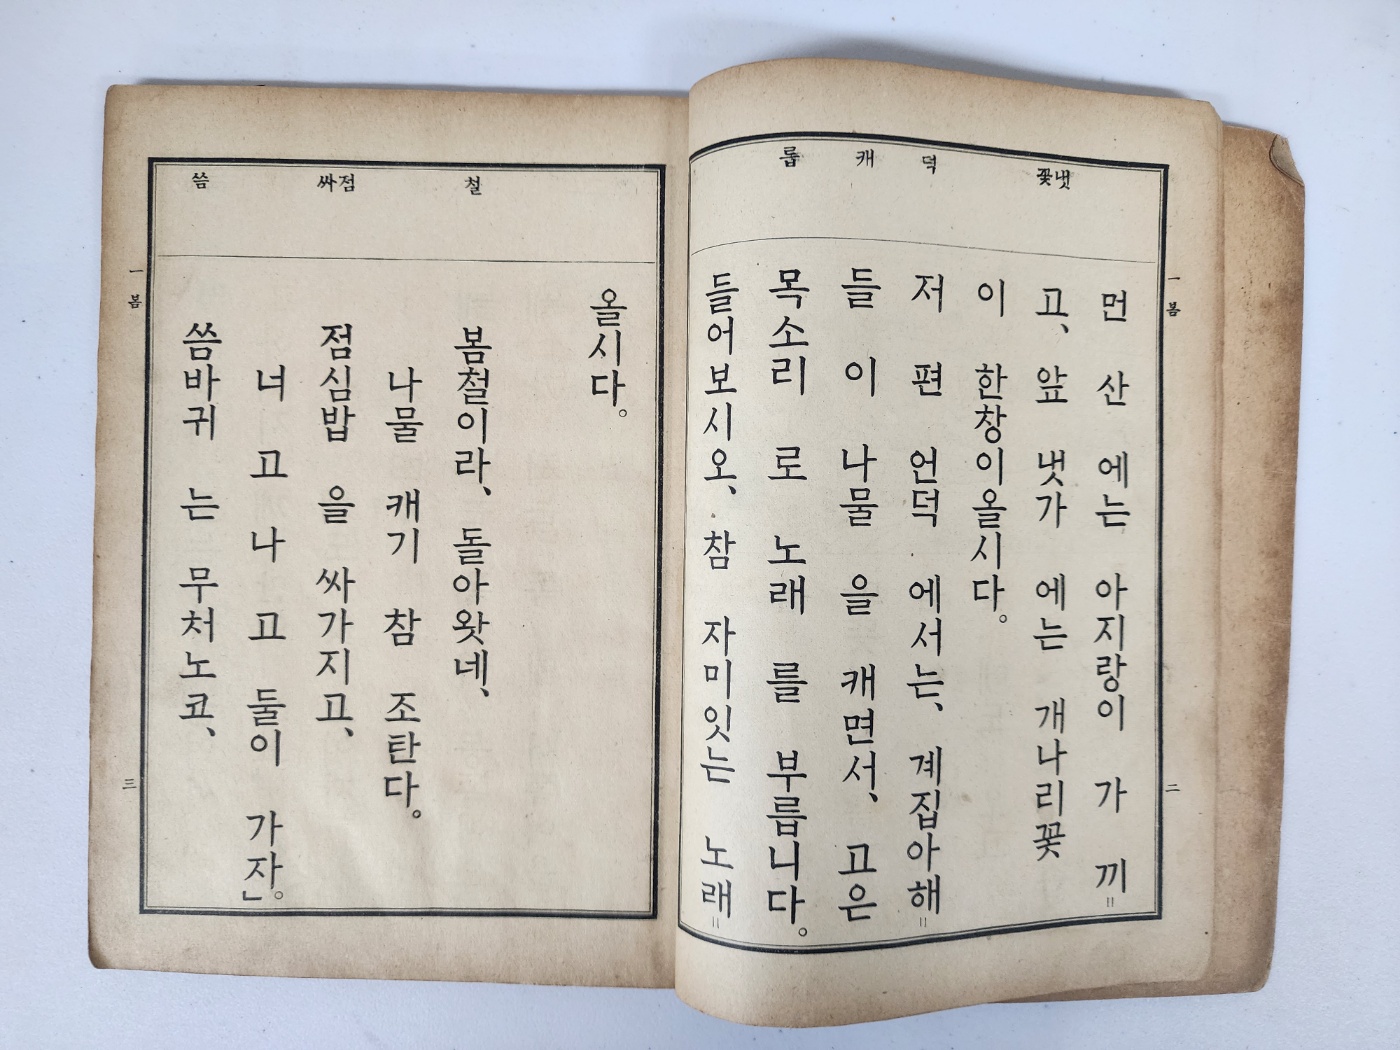 一 봄 二
냇 꽃
덕
캐
룹
먼 산 에는 아지랑이 가 끼=
고、앞 냇가 에는 개나리꽃
이 한창이올시다。
저 편 언덕 에서는、계집아해=
들 이 나물 을 캐면서、고은
목소리 로 노래 를 부릅니다。
들어보시오、참 자미잇는 노래=
一 봄 三
철
점 싸
씀
올시다。
봄철이라、돌아왓네、
나물 캐기 참 조탄다。
점심밥 을 싸가지고、
너 고 나 고 둘이 가잔다。
씀바귀 는 무처노코、